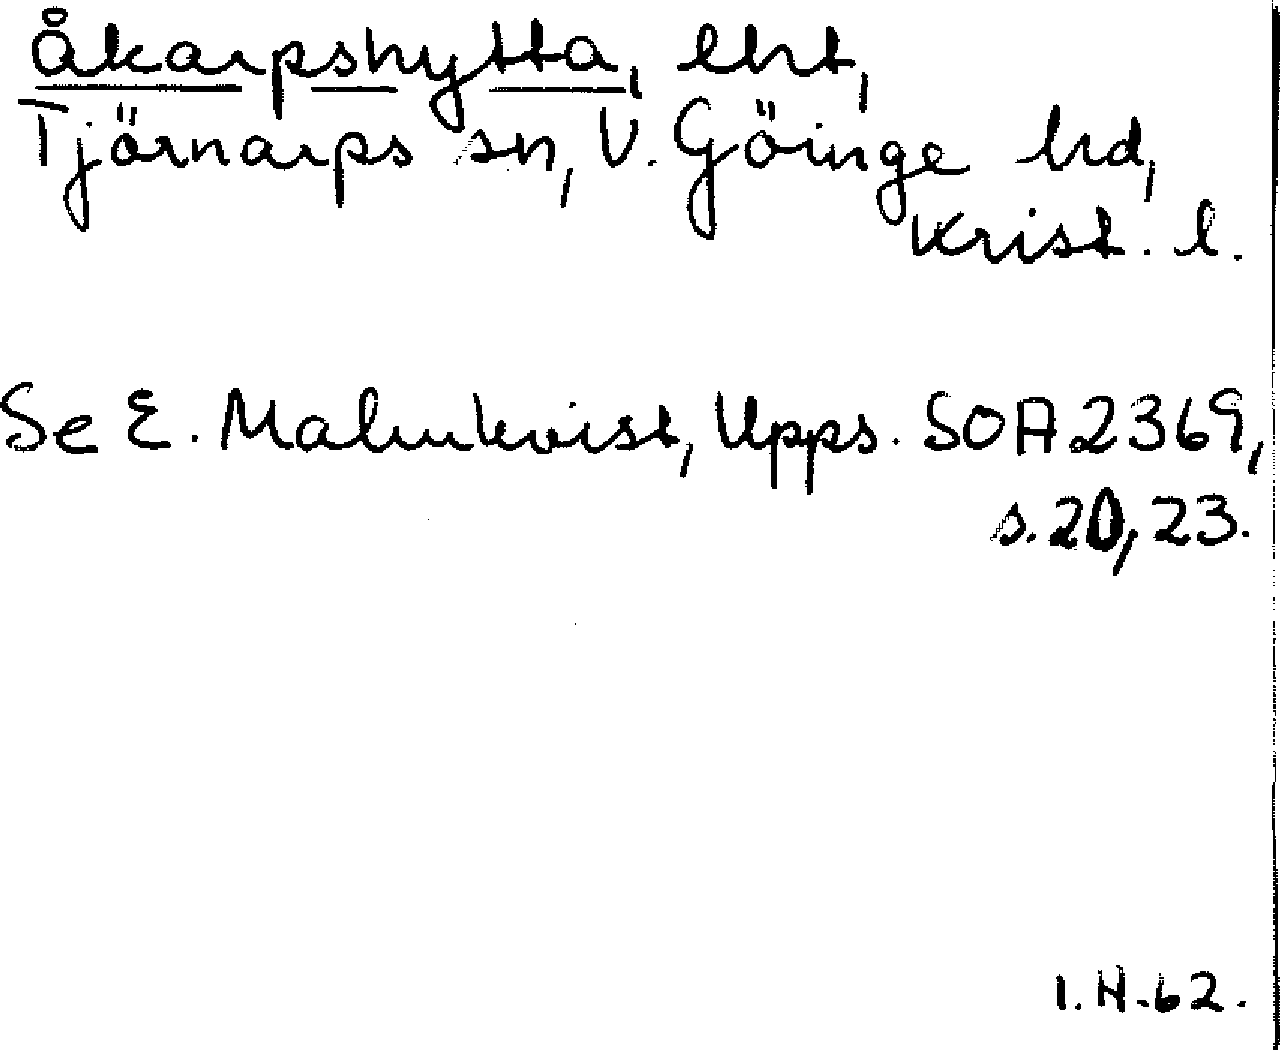 Åkarpshytta, lht,
Tjörnarps sn, V. Göinge hd,
Krist. l.
Se E. Malmkvist, Upps. SOA 2369,
s. 20, 23.
I. H. 62.